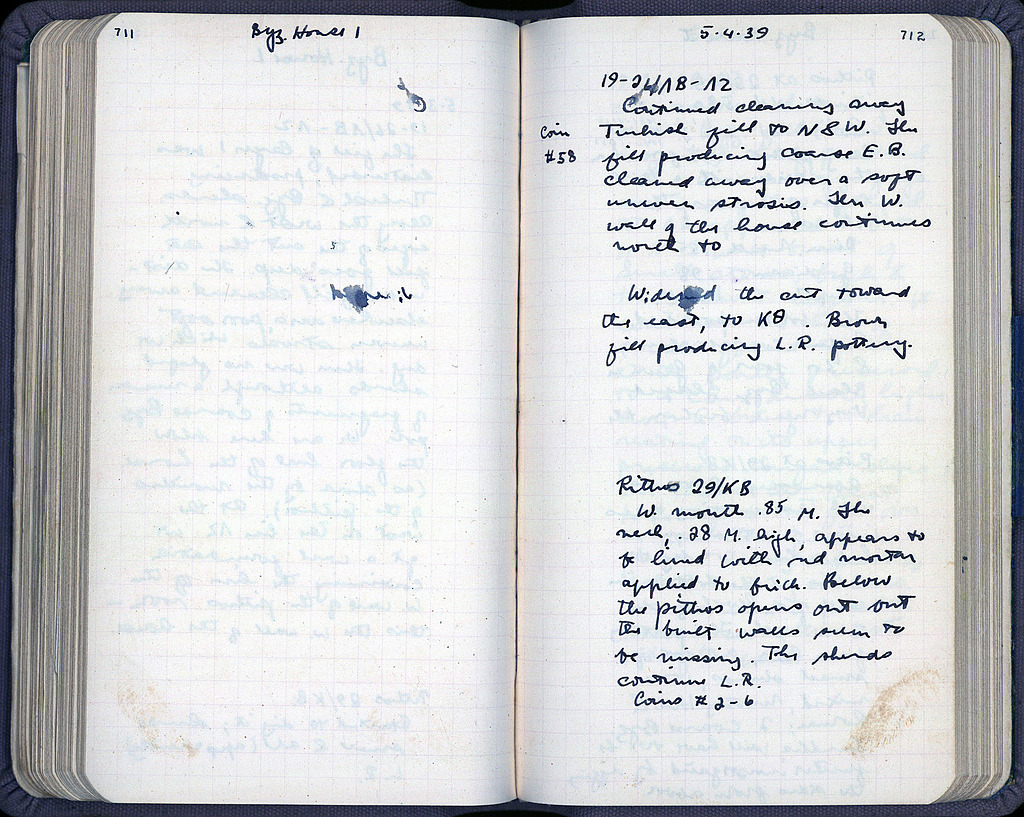 711
Byz. House 1
5.4.39
712
19-24/ΛB-ΛZ
Continued cleaning away
Coin
#58
Turkish fill to N & W. The
fill producing coarse E.B.
cleaned away over a soft
uneven strosis. The W.
wall of the house continues
north to
Widened the cut toward
the east, to KΘ. Brown
fill producing L.R. pottery.
Pithos 29/KB
W. mouth .85 M. The
neck, .28 M. high, appears to
be lined with red mortar
applied to brick. Below
the pithos opens out but
the built walls seem to
be missing. The sherds
continue L.R.
Coins # 2-6